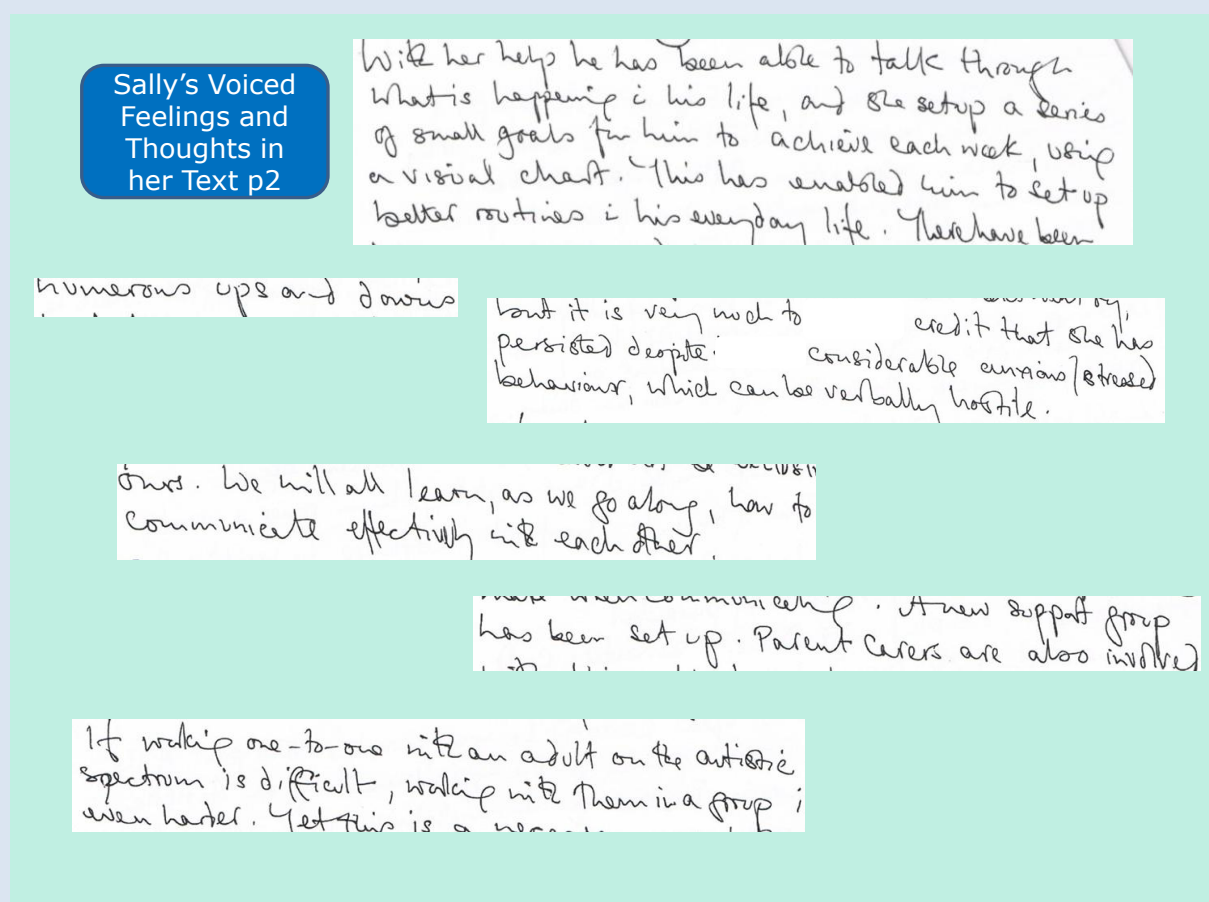 Sally's Voiced
Feelings and
Thoughts in
her Text p2
With her help he has been able to talk through
what is happening i his life, and she setup a series
of small goals for him to achieve each week, using
a visual chart. This has enabled him to set up
better routines i his everyday life. There have been
numerous ups and downs
but it is very much to credit that she has
persisted despite considerable anxious/stressed
behaviour, which can be verbally hostile.
ours. We will all learn, as we go along, how to
communicate effectively with each other.
when communicating. A new support group
has been set up. Parent Carers are also involved
If working one-to-one with an adult on the autistic
spectrum is difficult, working with them in a group i
even harder. Yet this is a